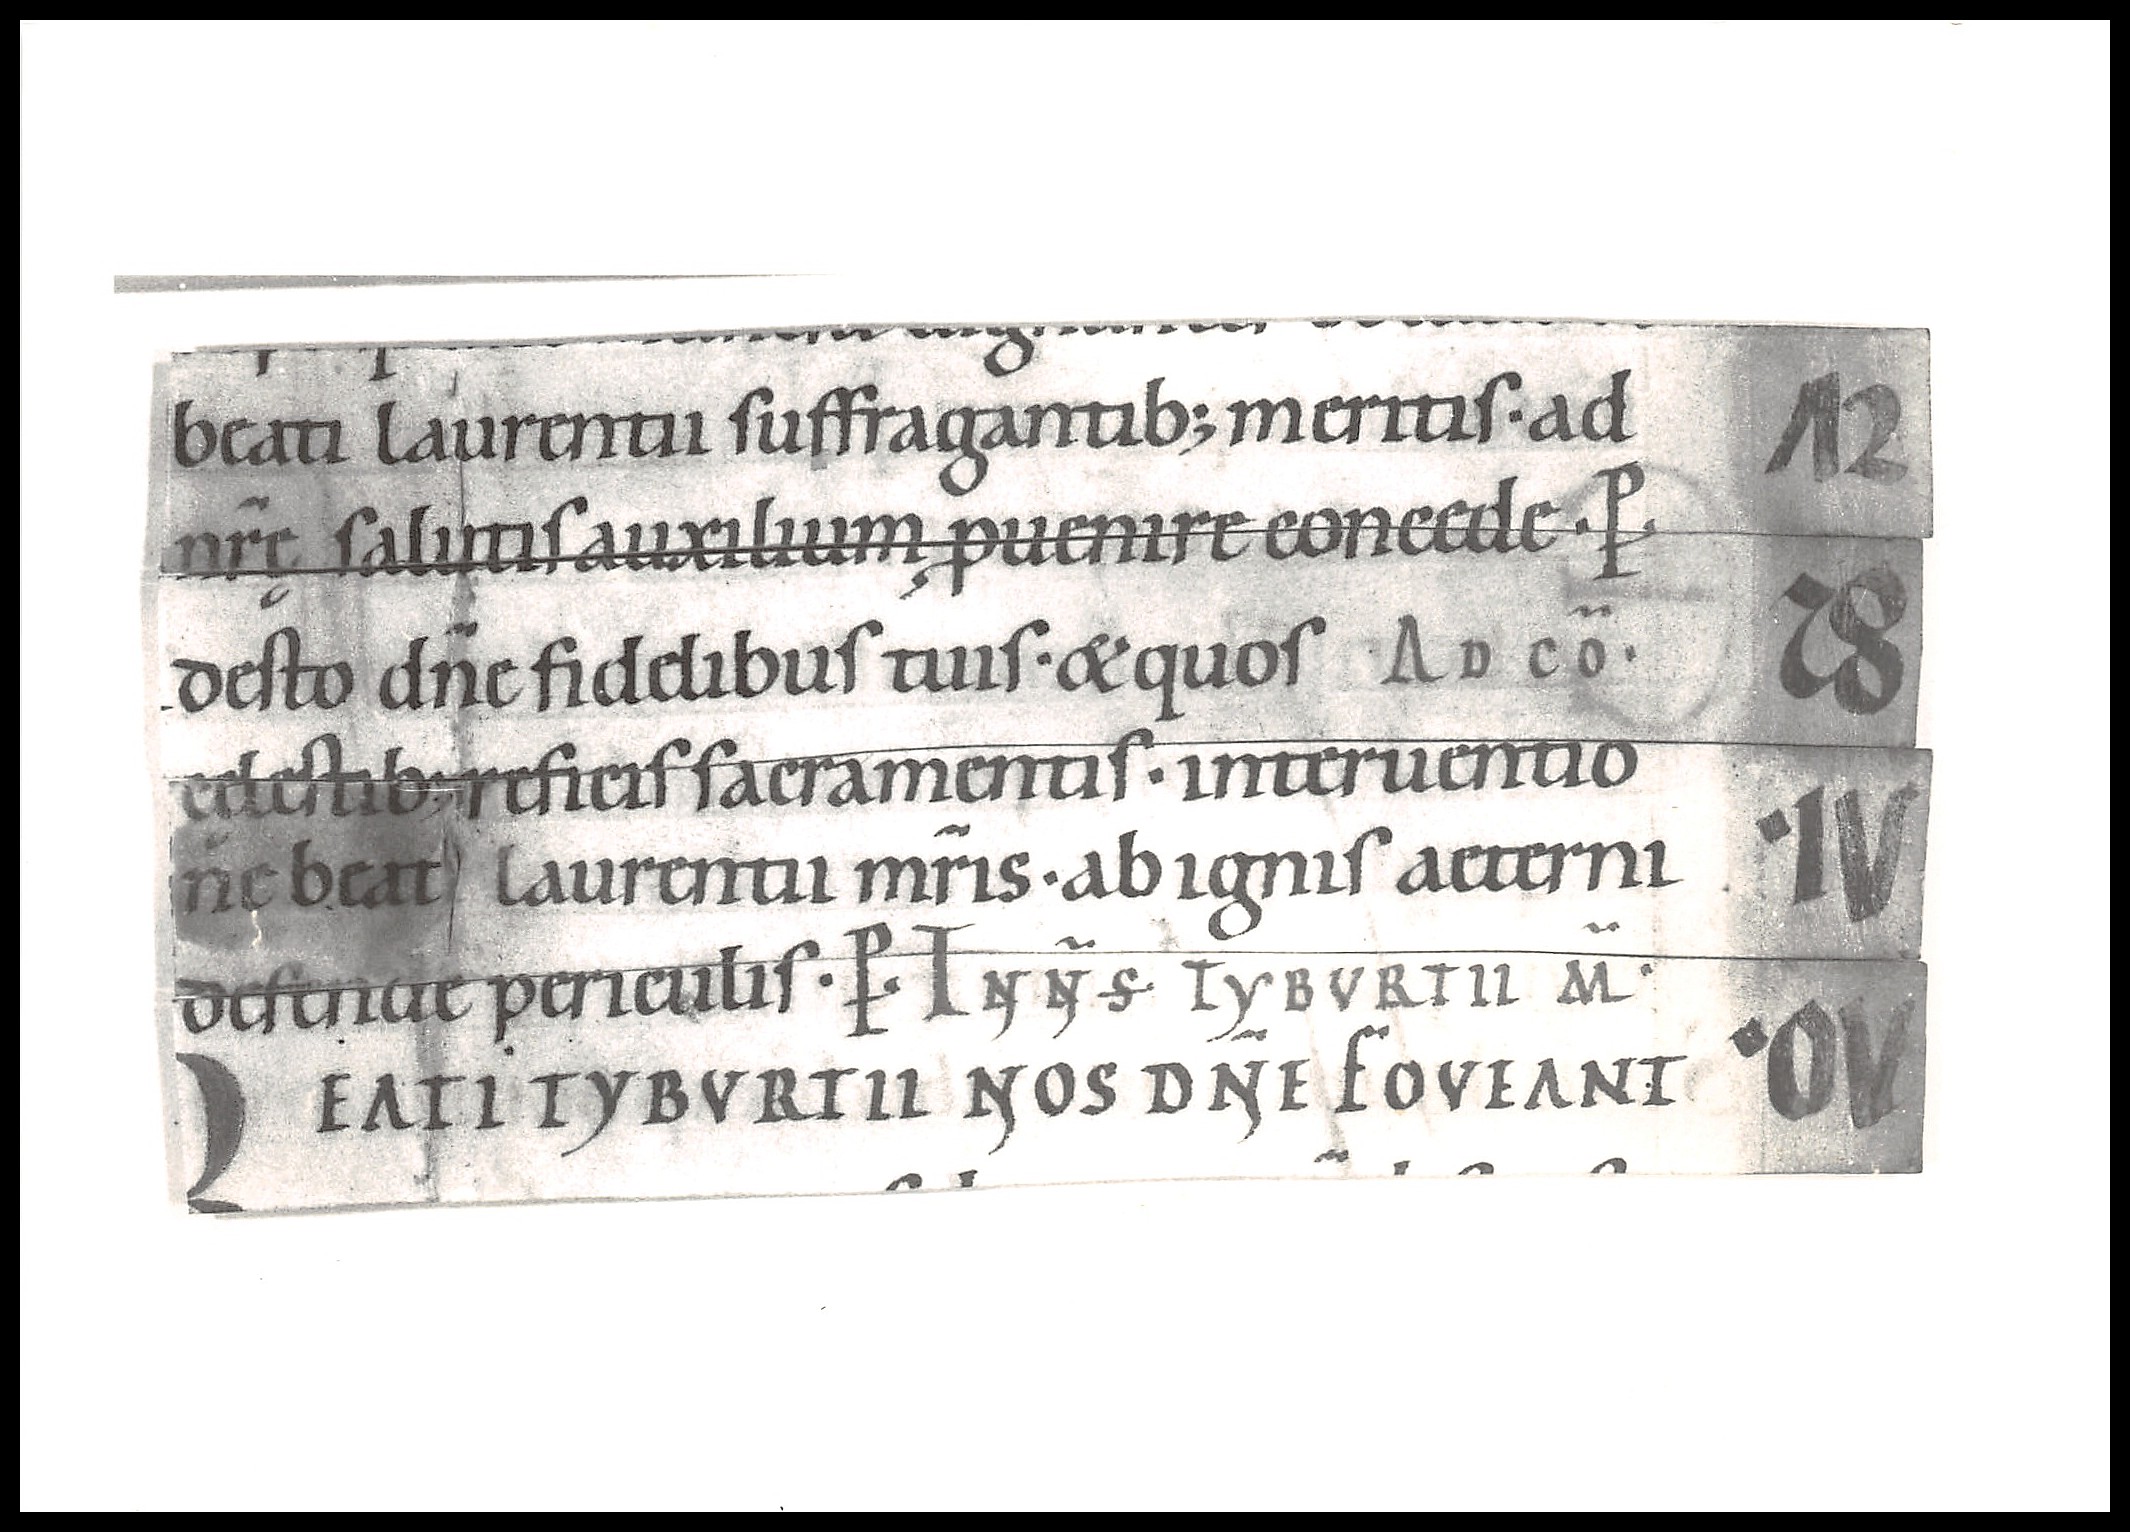 beati laurentii suffragantib; meritis · ad
nr̃ę salutis auxilium puenire concede · P
desto dñe fidelibus tuis · & quos AD CÕ ·
celestib; reficis sacramentis · interuentio
ñe beati laurentii mr̃is · ab ignis aeterni
defende periculis · P · IN Ñ S TYBVRTII M̃ ·
EATI TYBVRTII NOS DÑE FOVEANT
12
28
·IV
·OV